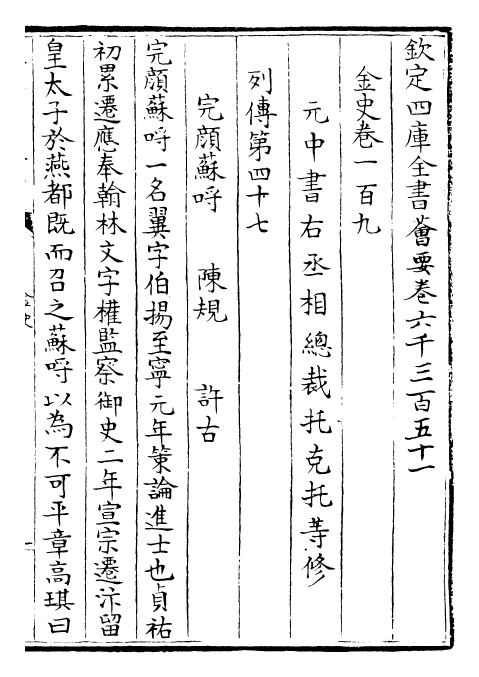 欽定四庫全書薈要卷六千三百五十一
金史卷一百九
元中書右丞相總裁托克托等修
列傳第四十七
完顔蘇哷　陳規　許古
完顔蘇哷一名翼字伯揚至寧元年策論進士也貞祐
初累遷應奉翰林文字權監察御史二年宣宗遷汴留
皇太子於燕都既而召之蘇哷以為不可平章高琪曰